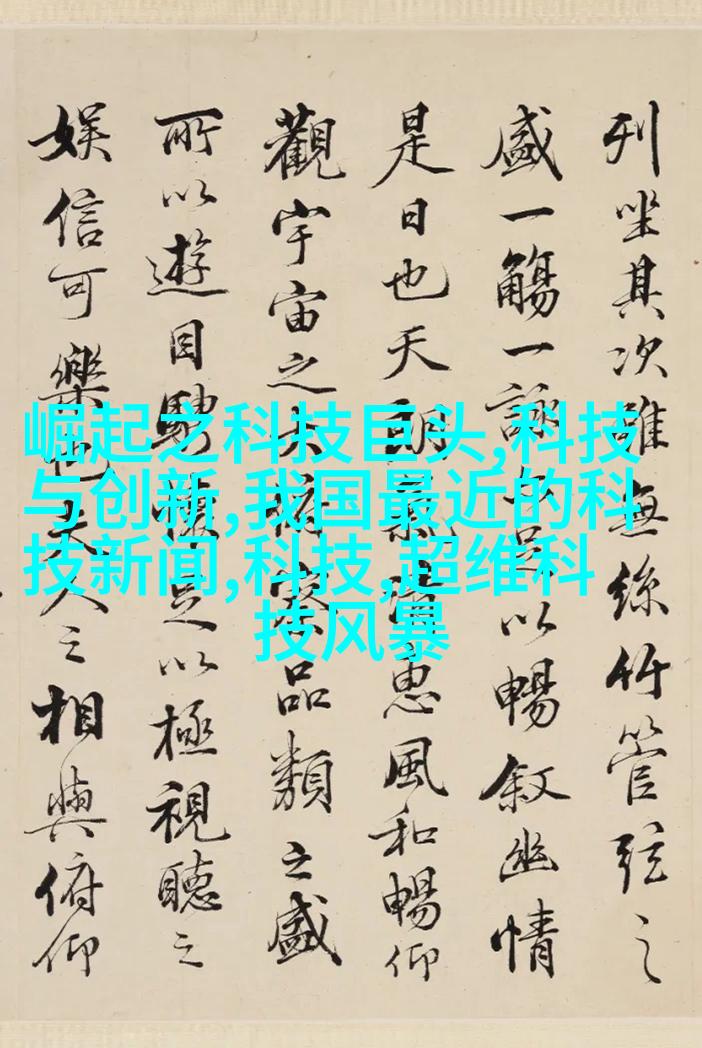 列坐其次雖無絲竹管弦之
盛一觴一詠亦足以暢叙幽情
是日也天朗氣清惠風和暢仰
觀宇宙之大俯察品類之盛
所以遊目騁懷足以極視聽之
娛信可樂也夫人之相與俯仰
崛起之科技巨头,科技
与创新,我国最近的科
技新闻,科技,超维科
技风暴